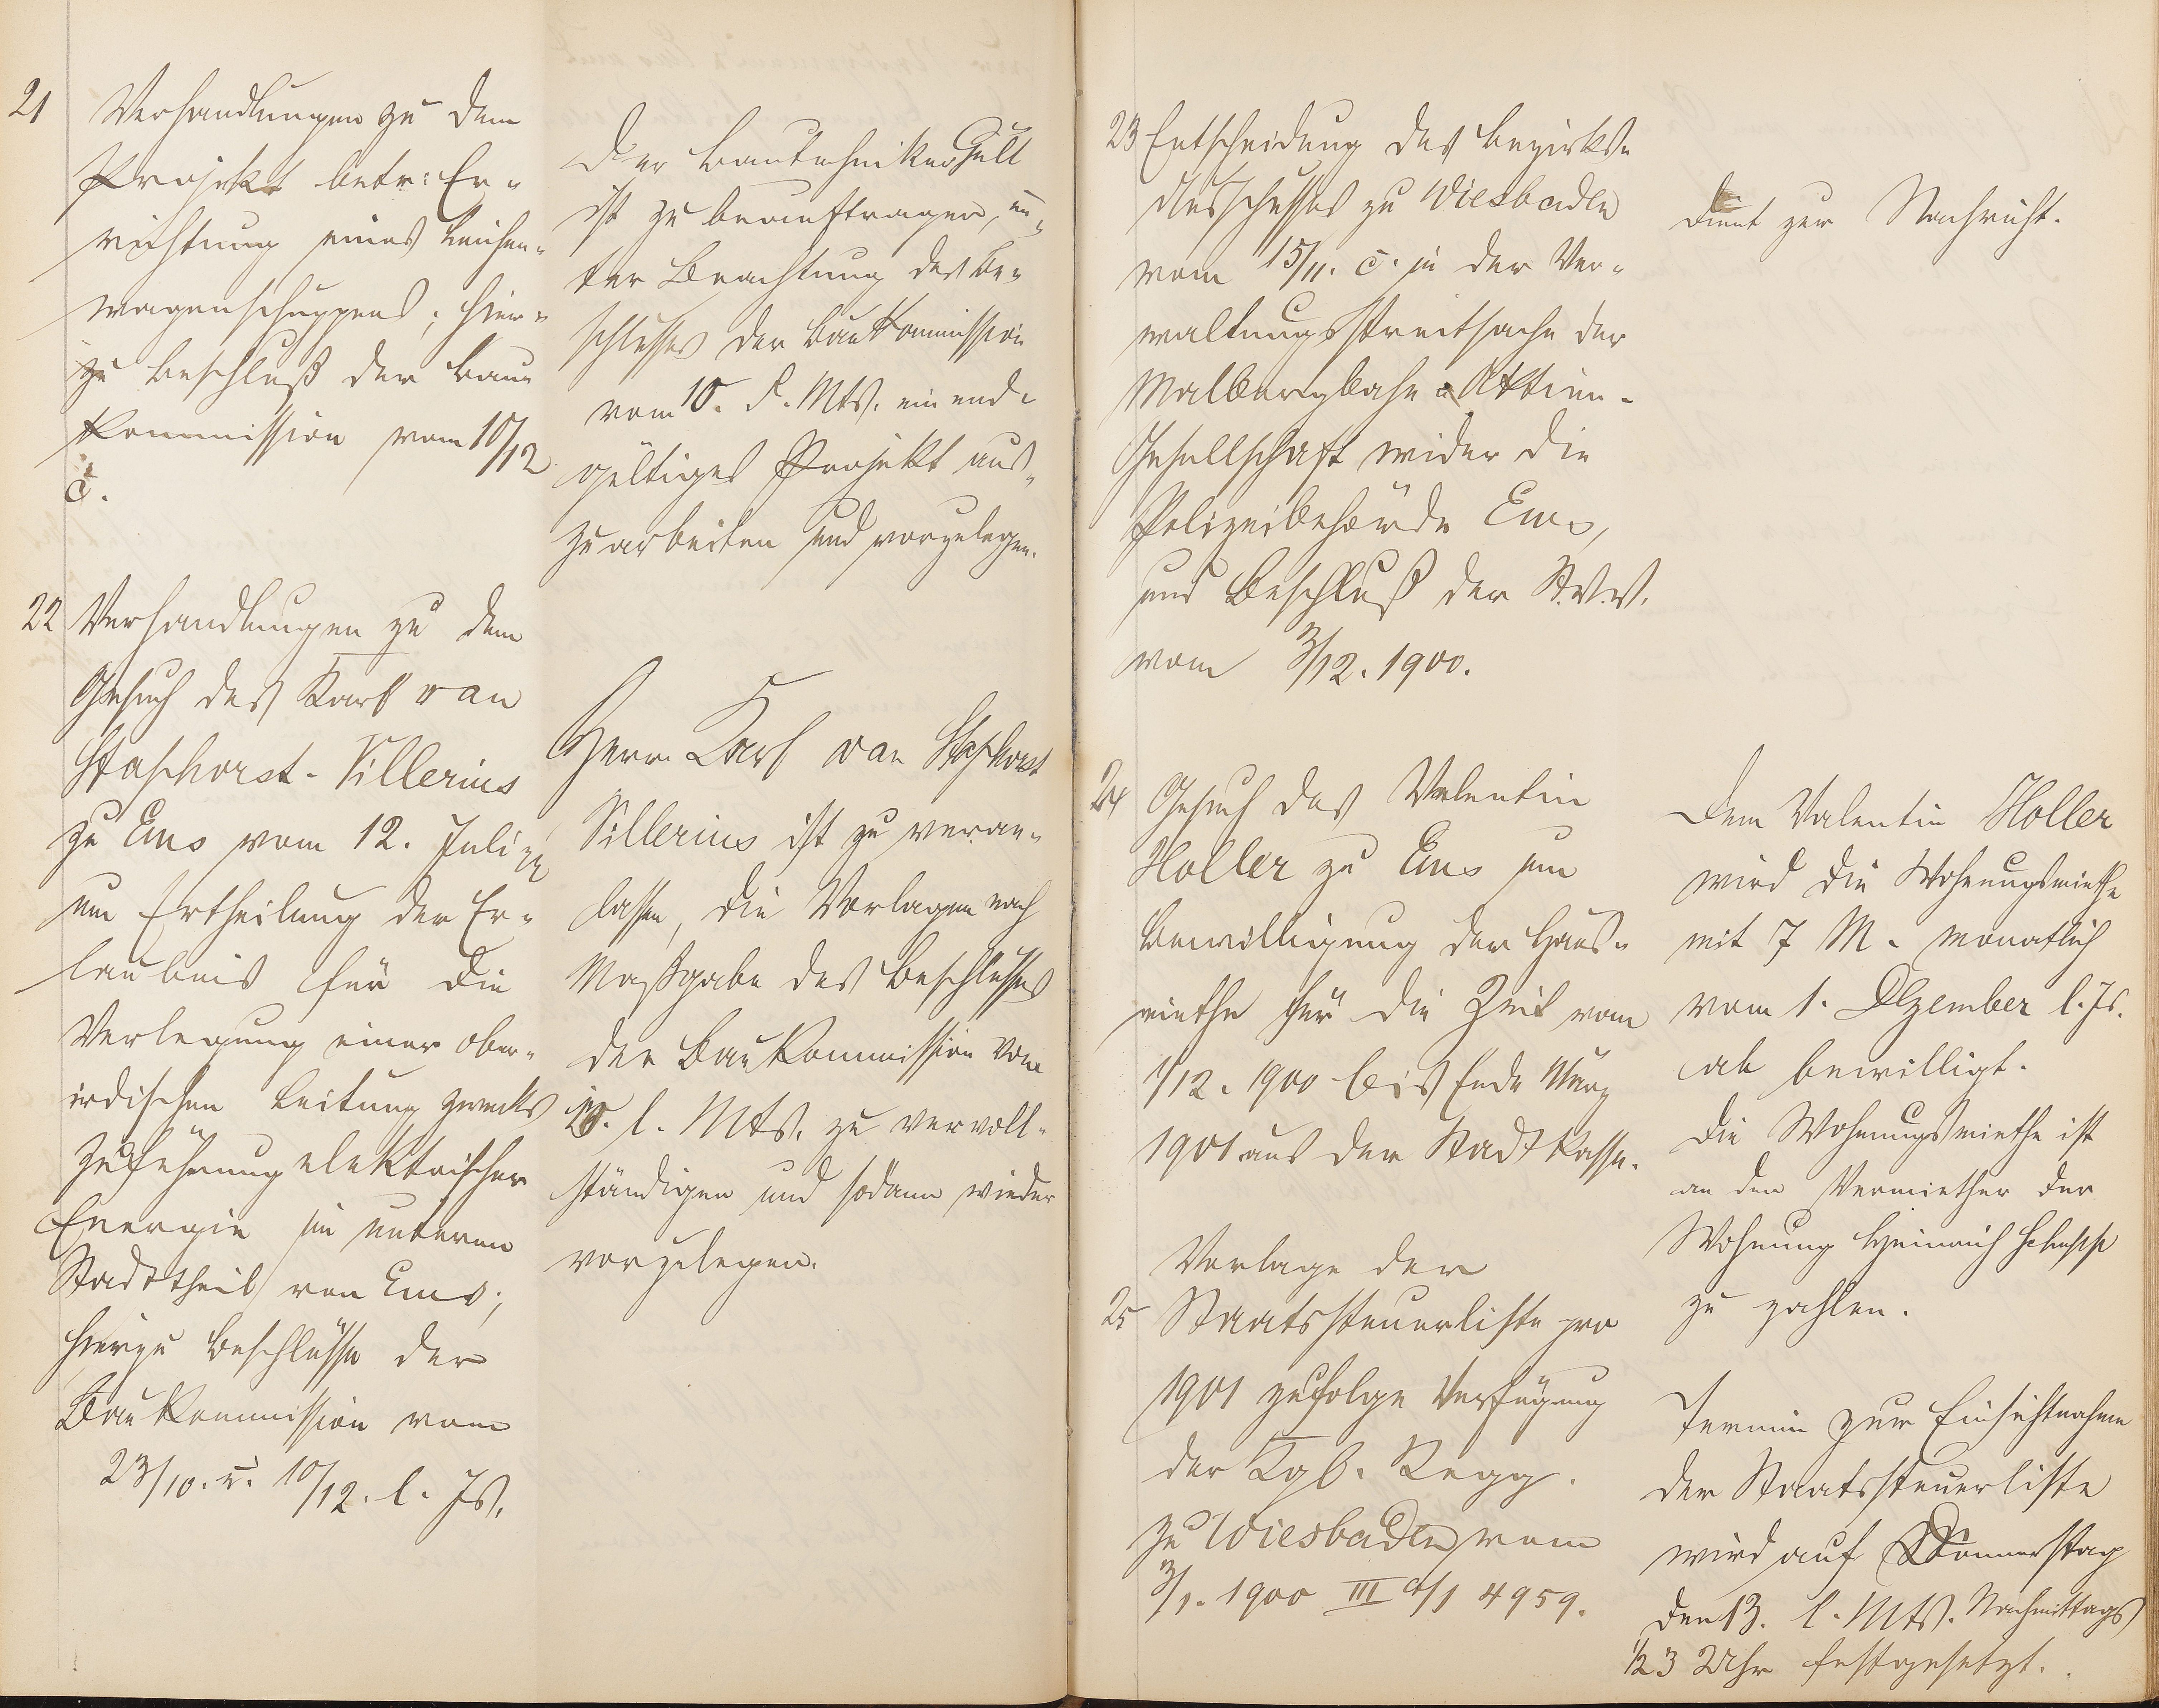 21
Verhandlungen zu dem
Projekt betr: Er-
richtung eines Leichen-
wagenschuppens; hier-
zu Beschluß der Bau-
kommission vom 10/12
c.
Der Bautechniker Gull
ist zu beauftragen, un-
ter Beachtung des Be-
schlusses der Baukommission
vom 10. d. Mts. ein end-
gültiges Projekt aus-
zuarbeiten und vorzulegen.
22 Verhandlungen zu dem
Gesuch des Karl van
Staphorst-Sillerius
zu Ems vom 12. Juli
um Ertheilung der Er-
laubnis für die
Verlegung einer ober-
irdischen Leitung zwecks
Zuführung elektrischer
Energie im unteren
Stadttheil von Ems;
hierzu Beschlüsse der
Baukommission vom
23/10. u. 10/12. l. Js.
Herr Karl van Staphorst
Sillerius ist zu veran-
lassen, die Vorlagen nach
Maßgabe des Beschlusses
der Baukommission vom
10. l. Mts. zu vervoll-
ständigen und sodann wieder
vorzulegen.
23 Entscheidung des Bezirks-
Ausschusses zu Wiesbaden
vom 15/11. c. in der Ver-
waltungsstreitsache der
Malbergbahn-Aktien-
Gesellschaft wider die
Polizeibehörde Ems,
und Beschluß der St.V.V.
vom 3/12. 1900.
dient zur Nachricht.
24 Gesuch des Valentin
Holler zu Ems um
Bewilligung der Haus-
miethe für die Zeit vom
1/12. 1900 bis Ende März
1901 aus der Stadtkasse.
Dem Valentin Holler
wird die Wohnungsmiethe
mit 7 M. monatlich
vom 1. Dezember l. Js.
ab bewilligt.
Die Wohnungsmiethe ist
an den Vermiether der
Wohnung Heinrich
zu zahlen.
Vorlage der
25 Staatssteuerliste pro
1901 zufolge Verfügung
der Kgl. Regg.
zu Wiesbaden vom
3/1. 1900 III a/1 4959.
Termin zur Einsichtnahme
der Staatssteuerliste
wird auf Donnerstag
den 13. l. Mts. Nachmittags
1/2 3 Uhr festgesetzt.